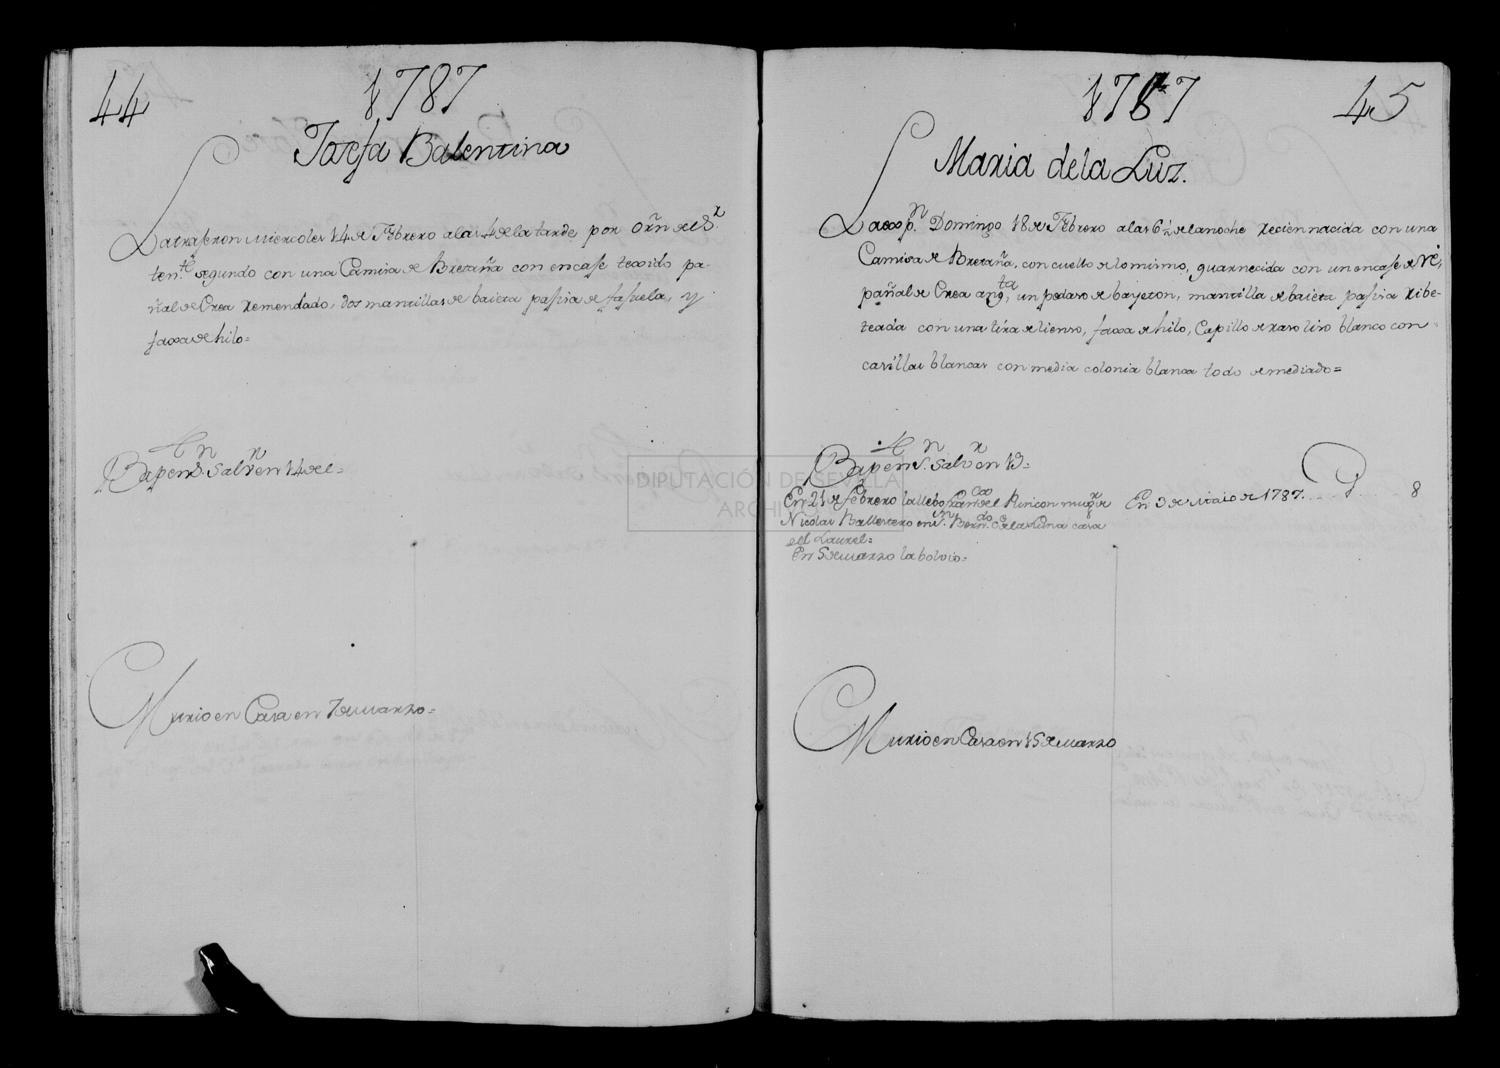 44
1787
Josefa Balentina
La traxeron Miercoles 14 de Febrero a las 4 de la tarde por orn del Sr.
tente. segundo con una Camisa de Bretaña con encaje texido pa-
ñal de Crea remendado, dos mantillas de baieta pasua de fajuela, y
faxa de hilo=
Bap en Sn. Salvr en 14 del=
Murio en Casa en 7 de Marzo=
1787
45
Maria de la Luz.
La exp.n Domingo 18 de Febrero a las 6½ de la noche recien nacida con una
Camisa de Bretaña, con cuello de lo mismo, guarnecida con un encaje de
pañal de Crea angta, un pedaso de bayeton, mantilla de baieta ribe-
teada con una tira de lienso, faxa de hilo, Capillo de raso liso blanco con
casillas blancas con media colonia blanca todo demediado=
Bap en Sn. Salvr en 19=
En 21 de Febrero la llebo del Rincon mugr de
Nicolas Ballestero en Berndo de la Luna casa
del Laurel=
En 5 de Marzo la bolvio=
En 3 de Maio de 1787 8
Murio en Casa en 15 de Marzo
DIPUTACIÓN DE SEVILLA
ARCHIVO